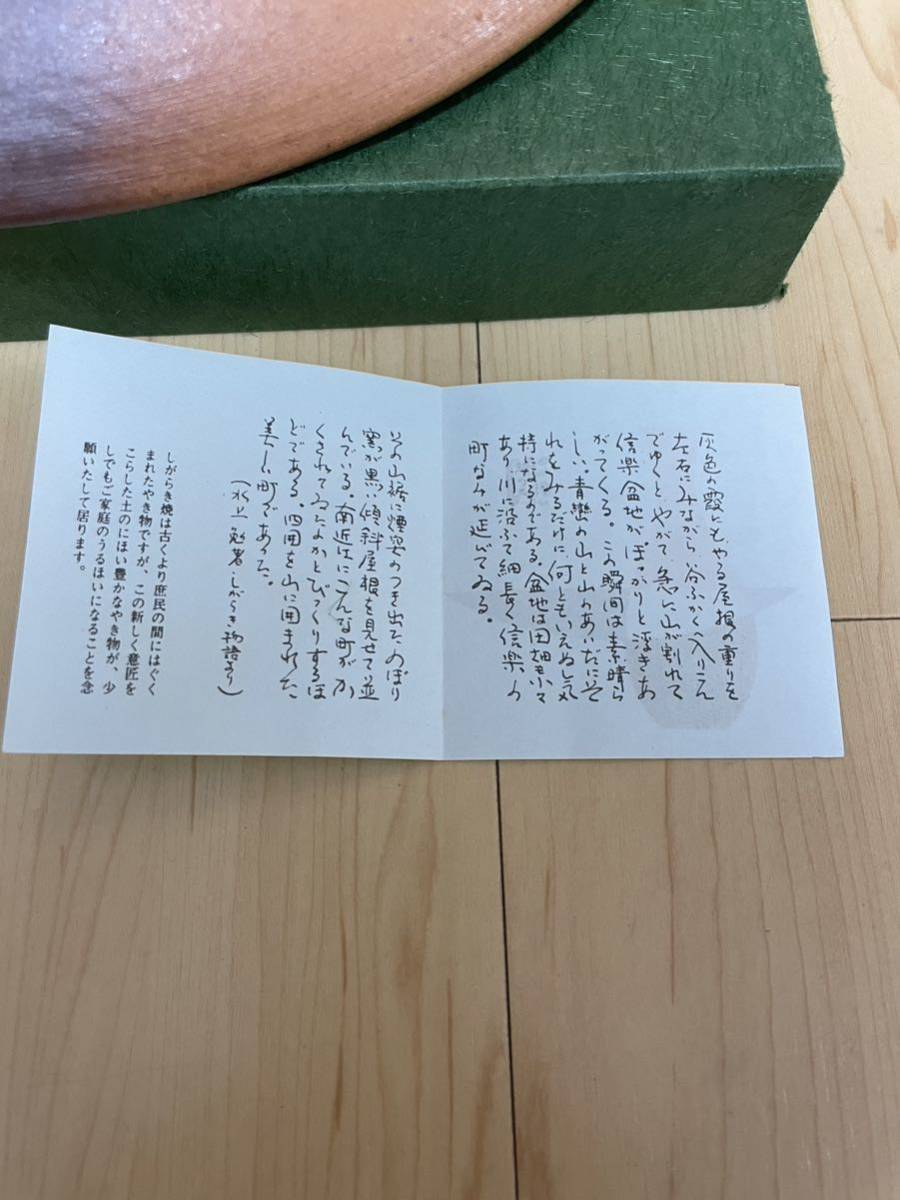 灰色の霞にもやる屋根の重りを
左右にみながら、谷ふかく入りこん
でゆくと、やがて、急に山が割れて
信楽盆地が、ぽっかりと浮きあ
がってくる。この瞬間は素晴ら
しい。青巒の山と山のあいだにそ
れをみるだけに、何ともいえぬ気
持になるのである。盆地は田畑も少々
あり、川に沿ふて細長く信楽の
町なみが延びてゐる。
その山裾に煙突のつき出た、のぼり
窯が黒い傾斜屋根を見せて並
んでいる。南近江にこんな町がか
くされてゐたかとびっくりするほ
どである。四囲を山に囲まれた
美しい町であった。
(水上勉著・しがらき物語より)
しがらき焼は古くより庶民の間にはぐく
まれたやき物ですが、この新しく意匠を
こらした土のにほい豊かなやき物が、少
しでもご家庭のうるほいになることを念
願いたして居ります。